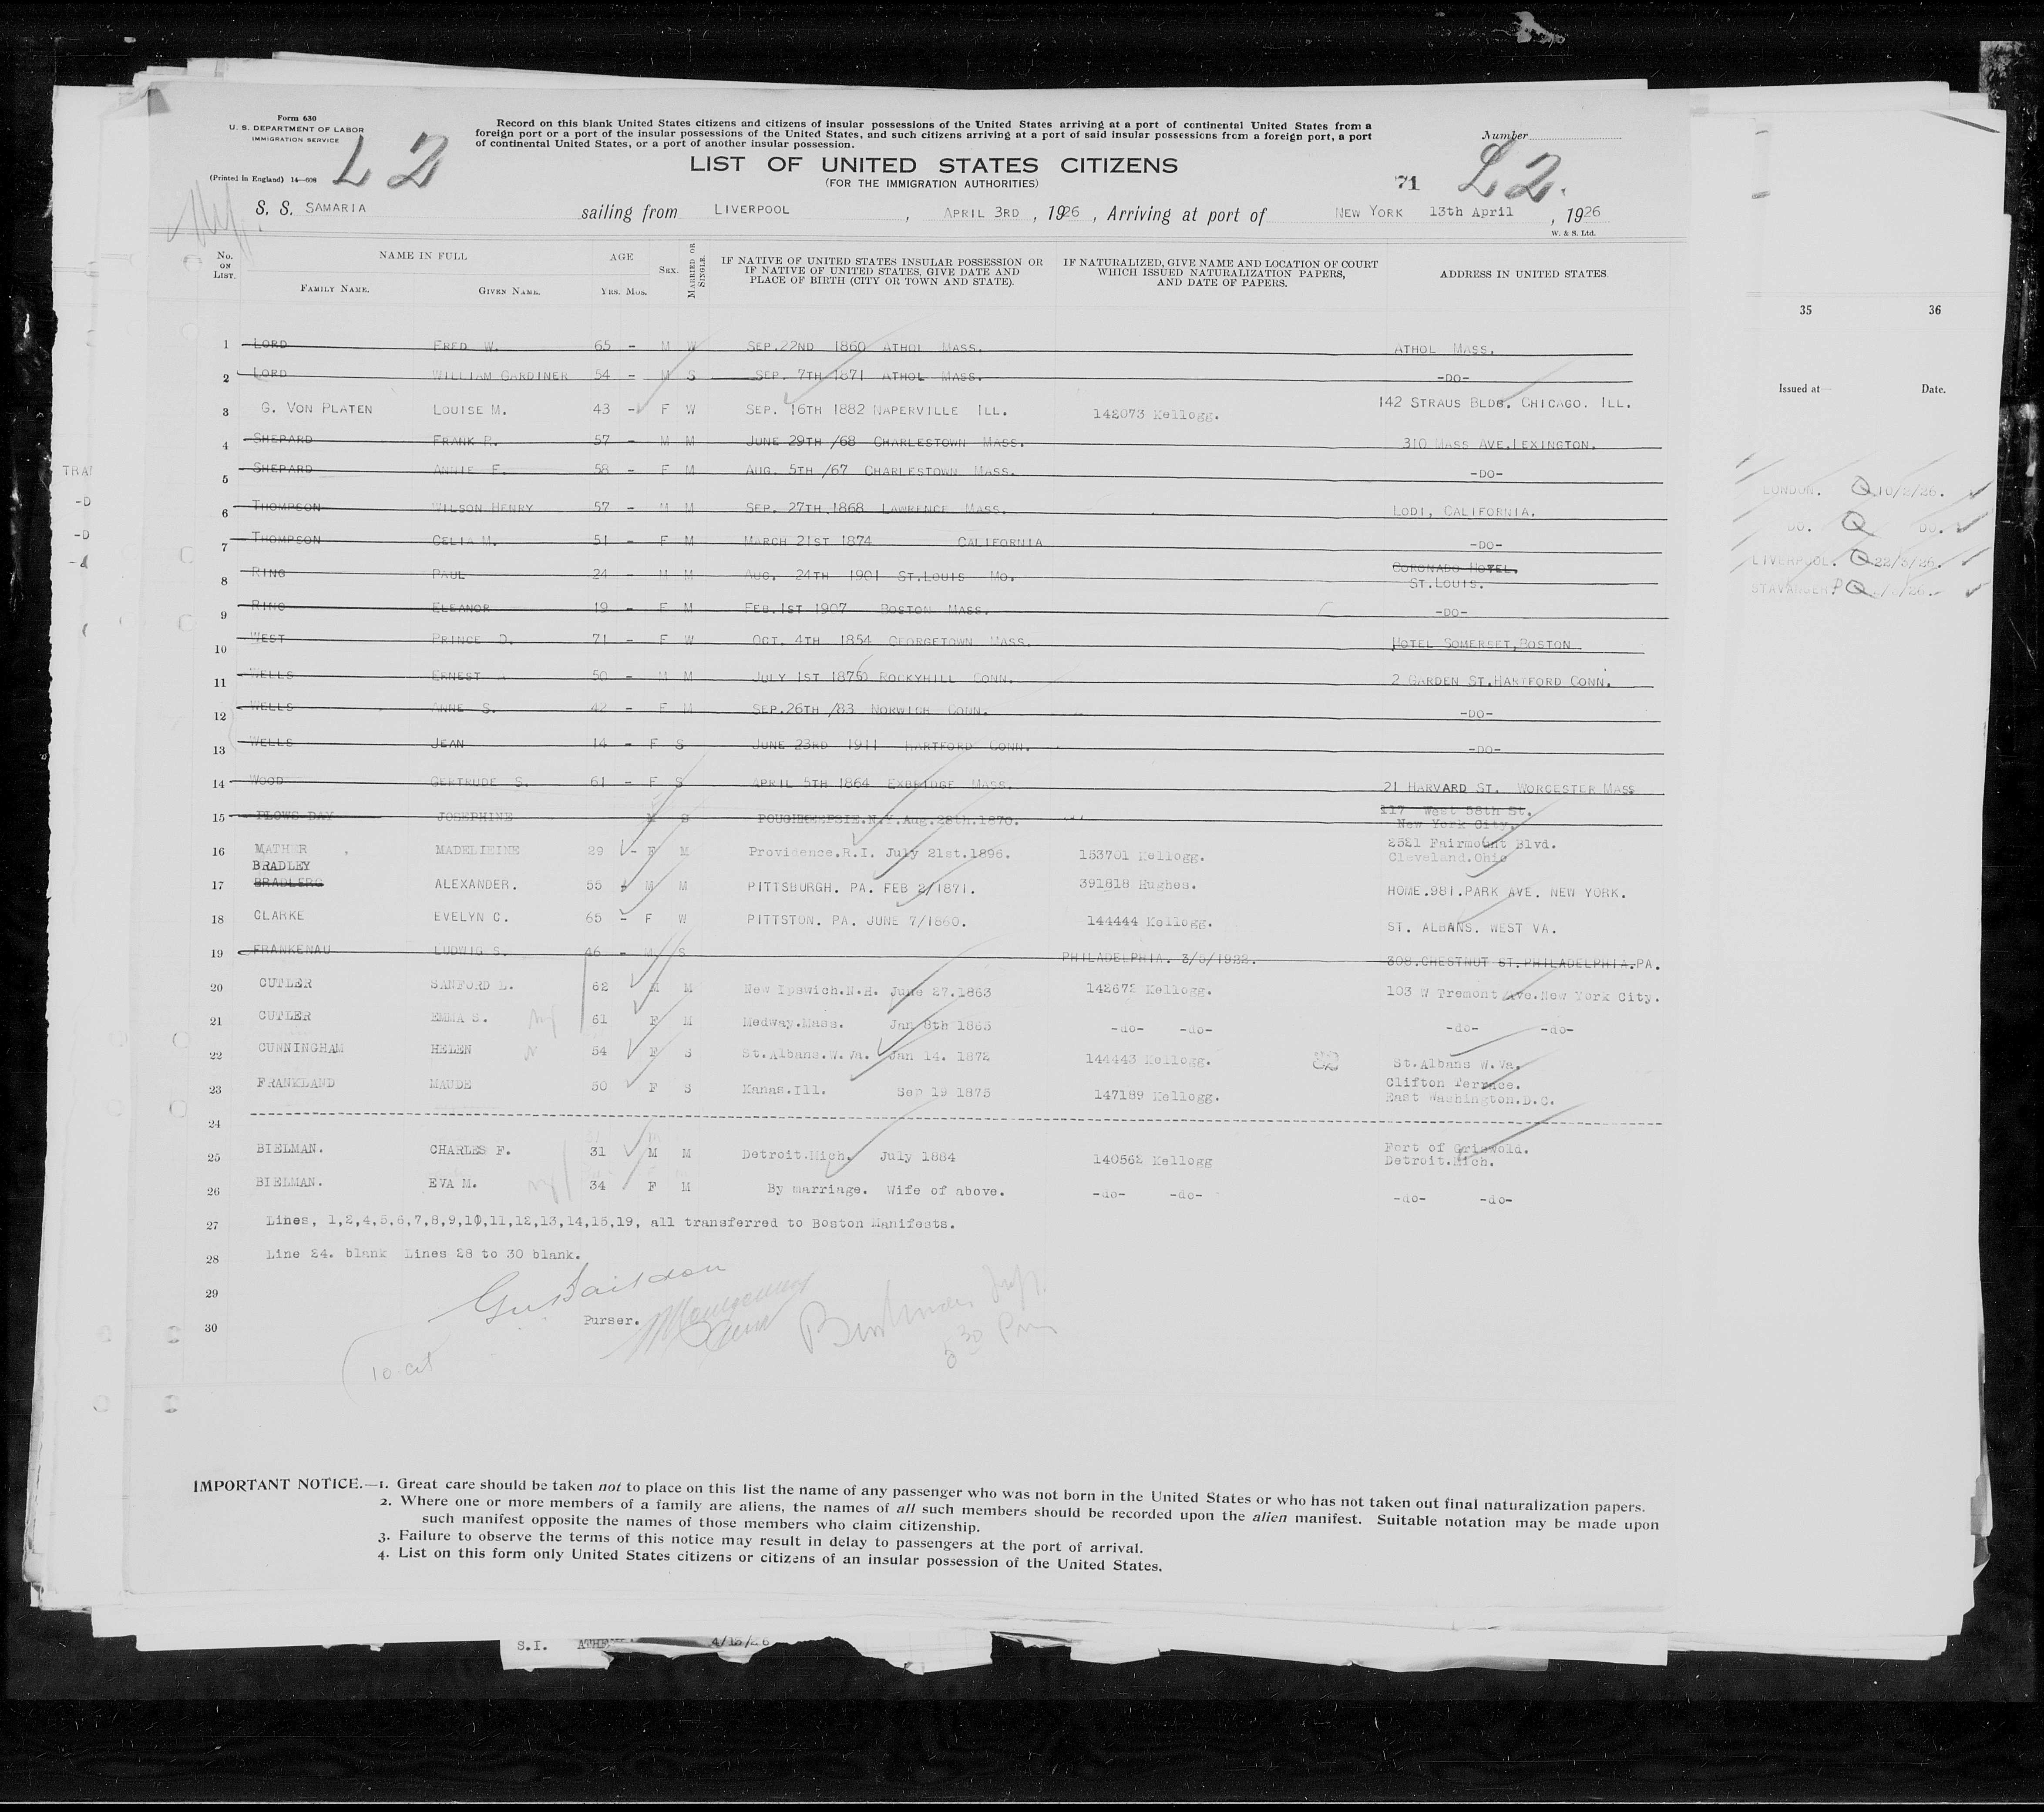 Form 630
U. S. DEPARTMENT OF LABOR
IMMIGRATION SERVICE
(Printed in England) 14—608
L 2
Record on this blank United States citizens and citizens of insular possessions of the United States arriving at a port of continental United States from a
foreign port or a port of the insular possessions of the United States, and such citizens arriving at a port of said insular possessions from a foreign port, a port
of continental United States, or a port of another insular possession.
LIST OF UNITED STATES CITIZENS
(FOR THE IMMIGRATION AUTHORITIES)
Number
71 L2.
S. S. SAMARIA sailing from LIVERPOOL, APRIL 3RD, 1926, Arriving at port of NEW YORK 13th April, 1926
W. & S. Ltd.
No. ON LIST. NAME IN FULL AGE SEX. MARRIED OR SINGLE. IF NATIVE OF UNITED STATES INSULAR POSSESSION OR IF NATIVE OF UNITED STATES, GIVE DATE AND PLACE OF BIRTH (CITY OR TOWN AND STATE). IF NATURALIZED, GIVE NAME AND LOCATION OF COURT WHICH ISSUED NATURALIZATION PAPERS, AND DATE OF PAPERS. ADDRESS IN UNITED STATES
FAMILY NAME. GIVEN NAME. YRS. MOS.
35 36
Issued at— Date.
1 LORD FRED W. 65 - M W SEP.22ND 1860 ATHOL MASS. ATHOL MASS.
2 LORD WILLIAM GARDINER 54 - M S SEP. 7TH 1871 ATHOL MASS. -DO-
3 G. VON PLATEN LOUISE M. 43 - F W SEP. 16TH 1882 NAPERVILLE ILL. 142073 Kellogg. 142 STRAUS BLDG. CHICAGO. ILL.
4 SHEPARD FRANK R. 57 - M M JUNE 29TH /68 CHARLESTOWN MASS. 310 MASS AVE.LEXINGTON.
5 SHEPARD ANNIE F. 58 - F M AUG. 5TH /67 CHARLESTOWN MASS. -DO-
6 THOMPSON WILSON HENRY 57 - M M SEP. 27TH 1868 LAWRENCE MASS. LODI, CALIFORNIA.
7 THOMPSON CELIA M. 51 - F M MARCH 21ST 1874 CALIFORNIA -DO-
8 RING PAUL 24 - M M AUG. 24TH 1901 ST.LOUIS MO. CORONADO HOTEL. ST.LOUIS.
9 RING ELEANOR 19 - F M FEB.1ST 1907 BOSTON MASS. -DO-
10 WEST PRINCE D. 71 - F W OCT. 4TH 1854 GEORGETOWN MASS. HOTEL SOMERSET,BOSTON
11 WELLS ERNEST A 50 - M M JULY 1ST 1875 ROCKYHILL CONN. 2 GARDEN ST.HARTFORD CONN.
12 WELLS ANNE S. 42 - F M SEP.26TH /83 NORWICH CONN. -DO-
13 WELLS JEAN 14 - F S JUNE 23RD 1911 HARTFORD CONN. -DO-
14 WOOD GERTRUDE S. 61 - F S APRIL 5TH 1864 EXBRIDGE MASS. 21 HARVARD ST. WORCESTER MASS
15 PLOWS DAY JOSEPHINE S POUGHKEEPSIE.N.Y.Aug.28th.1870. 117 West 58th St. New York City.
16 MATHER MADELIEINE 29 - F M Providence.R.I. July 21st.1896. 153701 Kellogg. 2521 Fairmount Blvd. Cleveland.Ohio
BRADLEY
17 BRADLERG ALEXANDER. 55 M M PITTSBURGH. PA. FEB 2/1871. 391818 Hughes. HOME.981.PARK AVE. NEW YORK.
18 CLARKE EVELYN C. 65 - F W PITTSTON. PA. JUNE 7/1860. 144444 Kellogg. ST. ALBANS. WEST VA.
19 FRANKENAU LUDWIG S. 46 - M S PHILADELPHIA. 3/5/1922. 308.CHESTNUT ST.PHILADELPHIA.PA.
20 CUTLER SANFORD L. 62 M M New Ipswich.N.H. June 27.1863 142672 Kellogg. 103 W Tremont Ave.New York City.
21 CUTLER EMMA S. 61 F M Medway.Mass. Jan 8th 1865 -do- -do- -do- -do-
22 CUNNINGHAM HELEN 54 F S St.Albans.W.Va. Jan 14. 1872 144443 Kellogg. St.Albans W.Va.
23 FRANKLAND MAUDE 50 F S Kanas.Ill. Sep 19 1875 147189 Kellogg. Clifton Terrace. East Washington.D.C.
24
25 BIELMAN. CHARLES F. 31 M M Detroit.Mich. July 1884 140562 Kellogg Fort of Griswold. Detroit.Mich.
26 BIELMAN. EVA M. 34 F M By marriage. Wife of above. -do- -do- -do- -do-
27 Lines, 1,2,4,5,6,7,8,9,10,11,12,13,14,15,19, all transferred to Boston Manifests.
28 Line 24. blank Lines 28 to 30 blank.
29
30 Purser.
5 30 Pm
10 cit
TRA
-D
-D
LONDON. 10/2/26.
DO. DO.
LIVERPOOL. 22/3/26.
STAVANGER.
IMPORTANT NOTICE.—1. Great care should be taken not to place on this list the name of any passenger who was not born in the United States or who has not taken out final naturalization papers.
2. Where one or more members of a family are aliens, the names of all such members should be recorded upon the alien manifest. Suitable notation may be made upon
such manifest opposite the names of those members who claim citizenship.
3. Failure to observe the terms of this notice may result in delay to passengers at the port of arrival.
4. List on this form only United States citizens or citizens of an insular possession of the United States.
S.I. 4/13/26